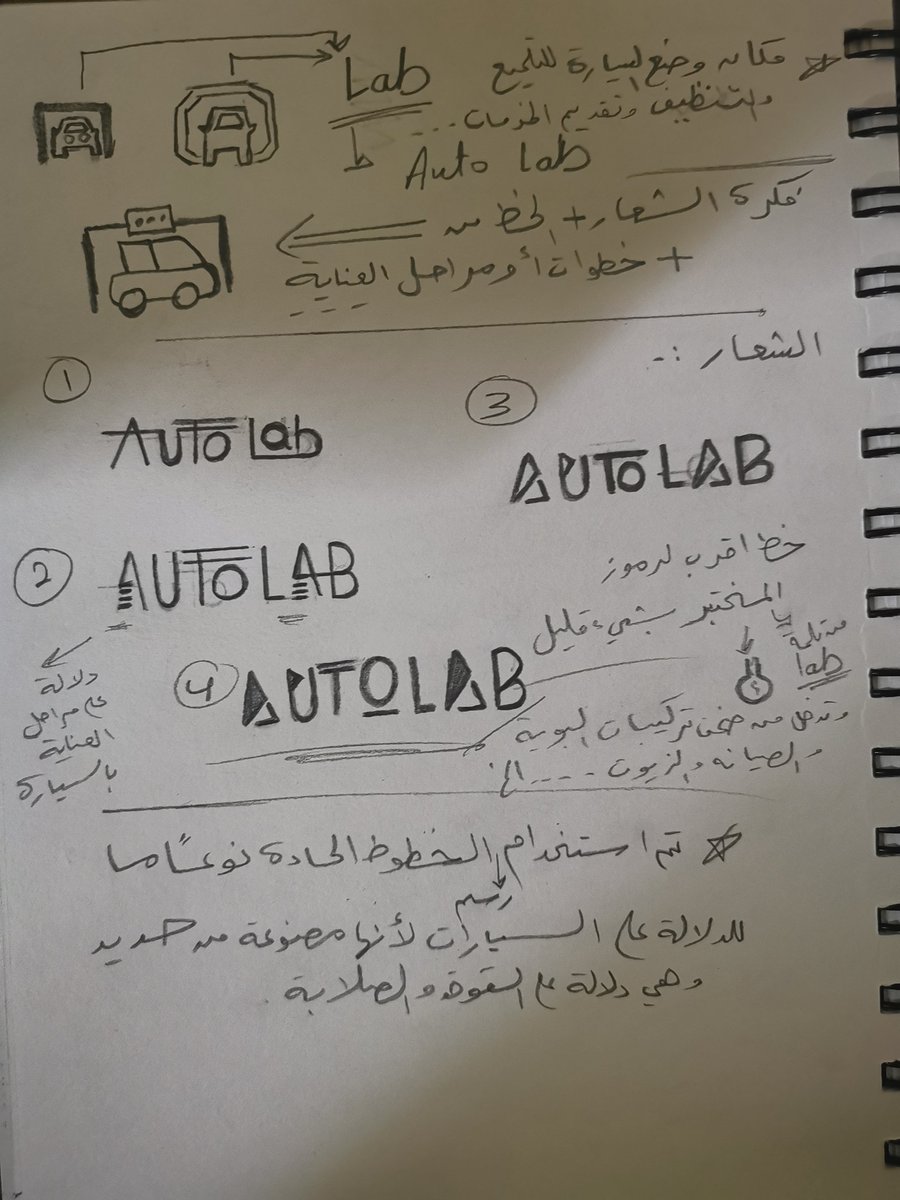 Lab
مكان وضع السيارة للتلميع
والتنظيف وتقديم الخدمات ....
Auto lab
فكرة الشعار + الخط من
+ خطوات أو مراحل العناية
الشعار :-
1
AUTO Lab
3
AUTOLAB
2
AUTOLAB
خط اقرب لرموز
المختبر بشيء قليل
من كلمة
lab
دلالة
على مراحل
العناية
بالسيارة
4
AUTOLAB
وتدخل من ضمن تركيبات البوية
والصيانه والزيوت .... الخ
تم استخدام الخطوط الحادة نوعًا ما
رسم
للدلالة على السيارات لأنها مصنوعة من حديد
وهي دلالة على القوة والصلابة.